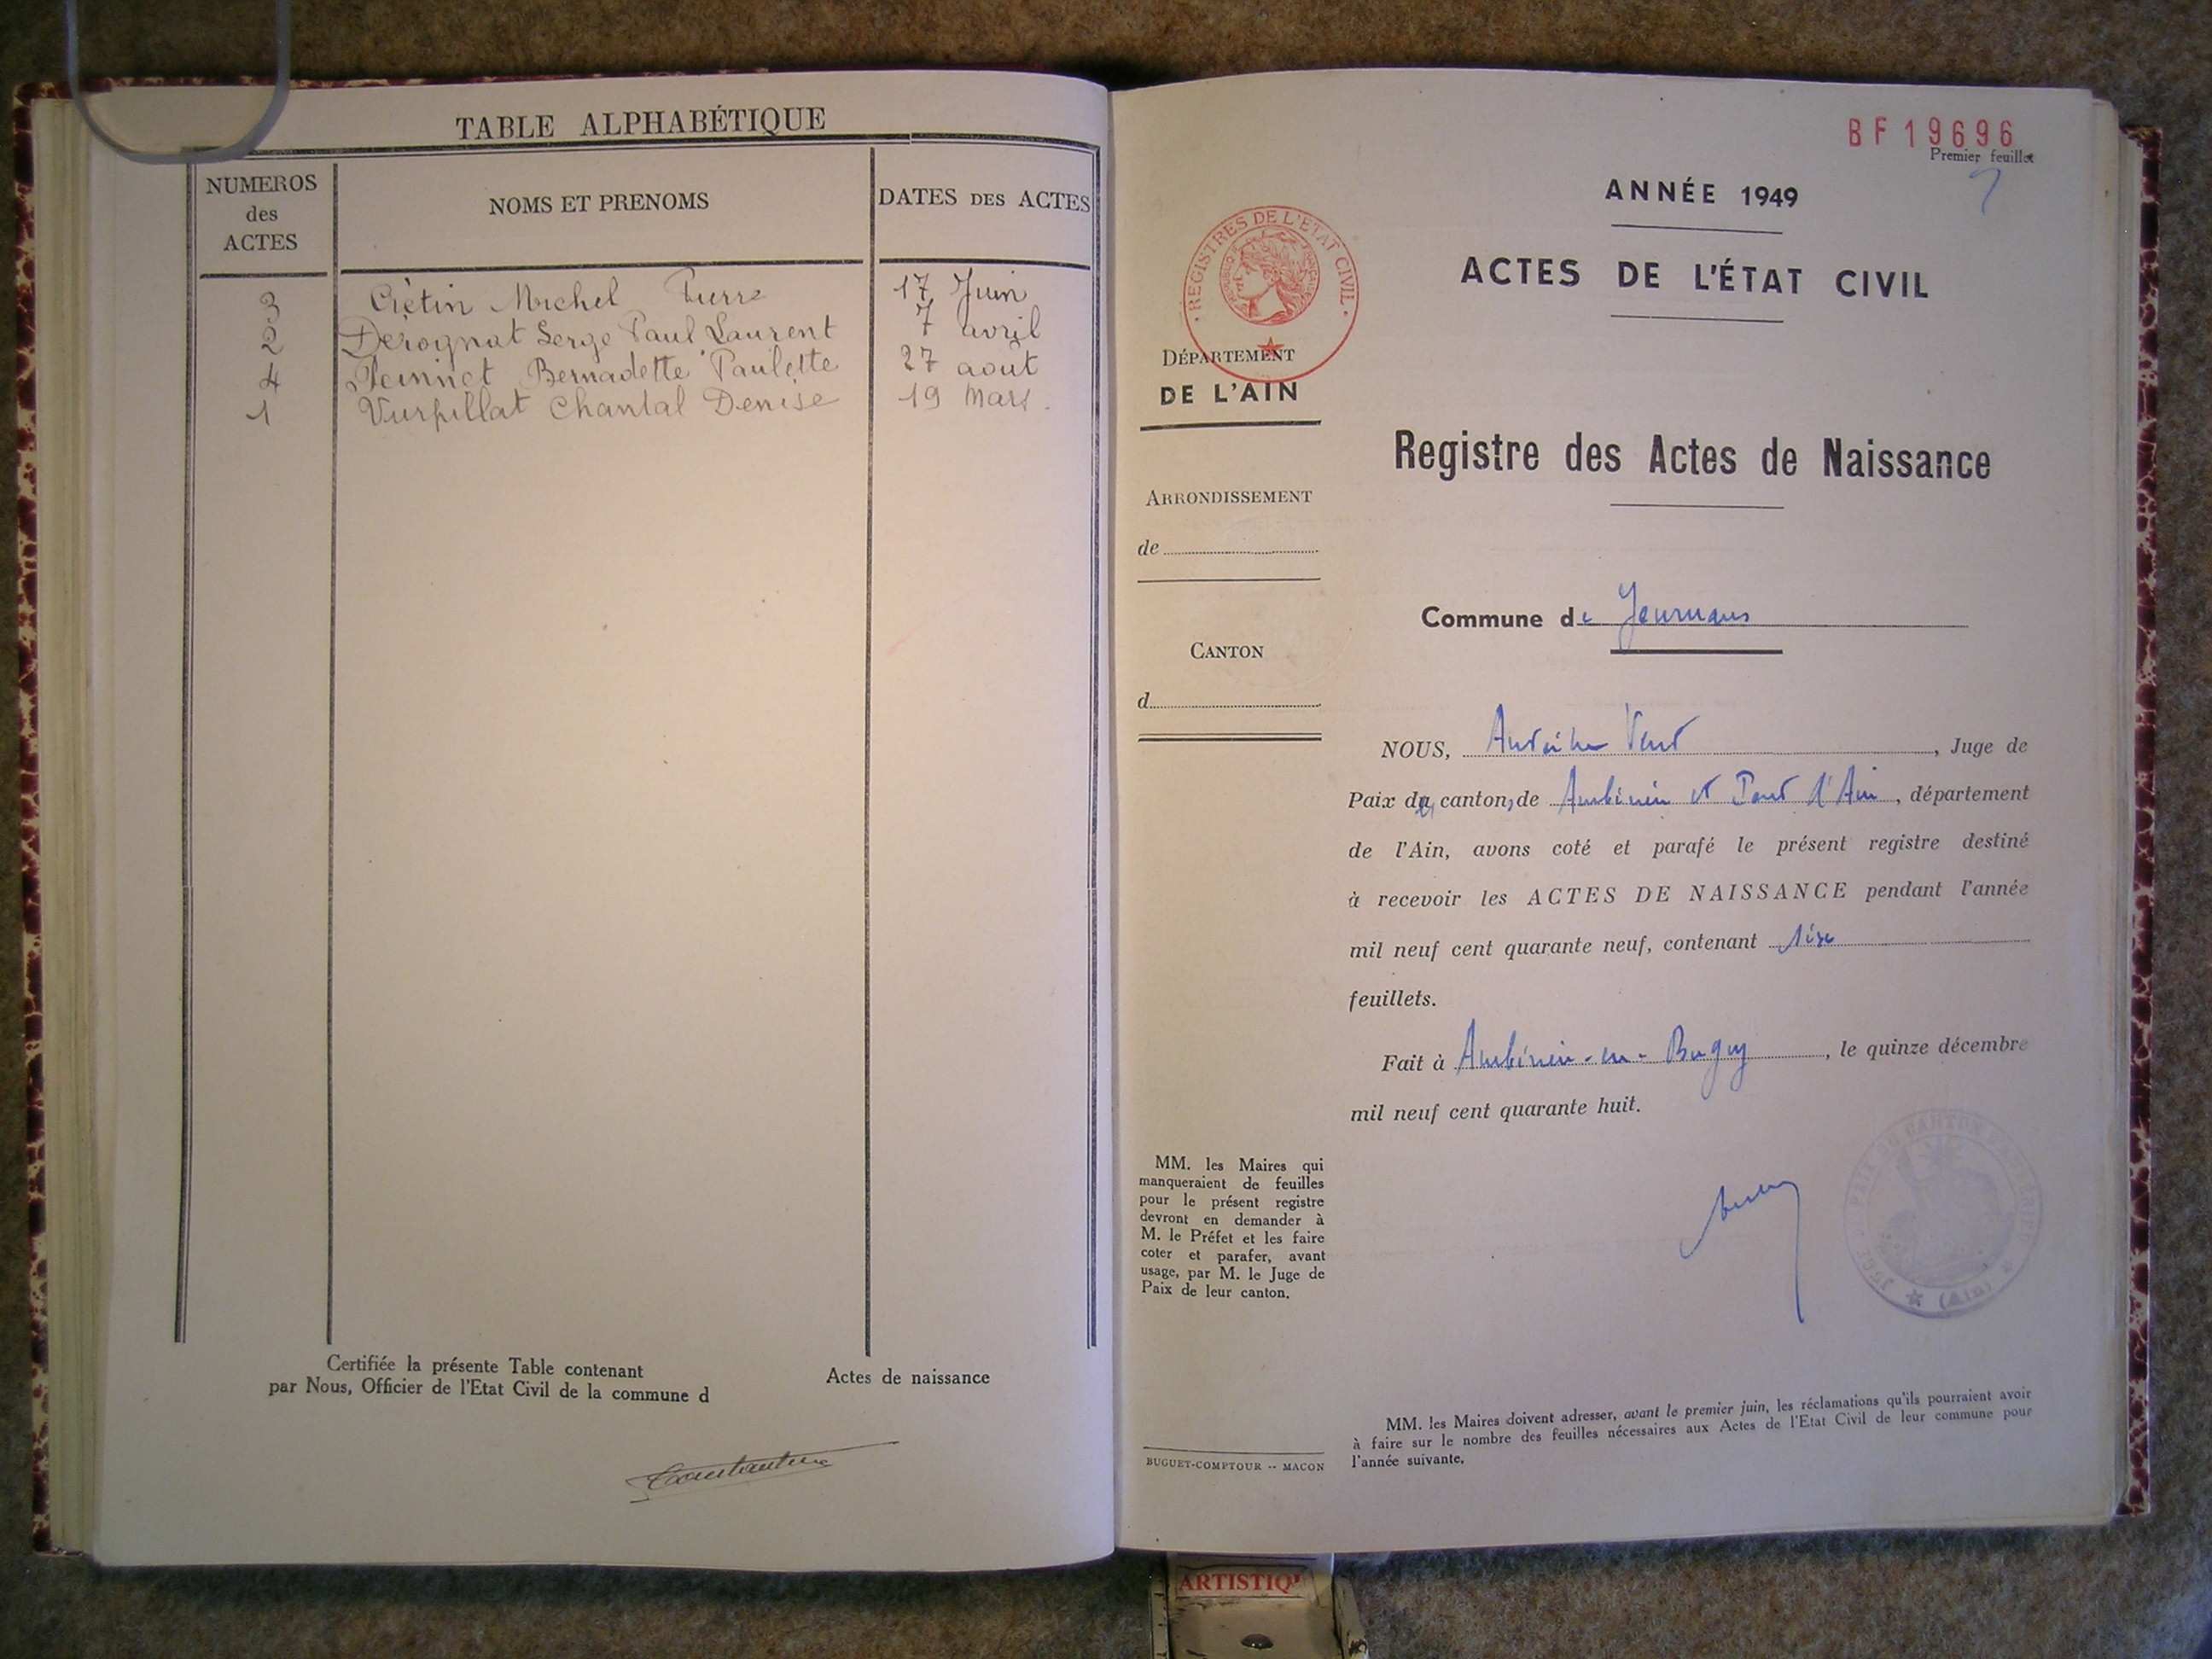 TABLE ALPHABÉTIQUE
NUMEROS
des
ACTES
NOMS ET PRENOMS
DATES DES ACTES
3 Crétin Michel Pierre 17 Juin
2 Dérognat Serge Paul Laurent 7 avril
4 Bernadette Paulette 27 août
1 Vurpillat Chantal Denise 19 Mars.
Certifiée la présente Table contenant Actes de naissance
par Nous, Officier de l'Etat Civil de la commune d
BF19696
Premier feuillet
ANNÉE 1949
ACTES DE L'ÉTAT CIVIL
• REGISTRES DE L'ETAT CIVIL •
DÉPARTEMENT
DE L'AIN
Registre des Actes de Naissance
ARRONDISSEMENT
de
Commune de Journans
CANTON
d
NOUS, Antoine , Juge de
Paix du canton, de Ambérieu et Pont d'Ain, département
de l'Ain, avons coté et parafé le présent registre destiné
à recevoir les ACTES DE NAISSANCE pendant l'année
mil neuf cent quarante neuf, contenant
feuillets.
Fait à Ambérieu-en-Bugey, le quinze décembre
mil neuf cent quarante huit.
MM. les Maires qui
manqueraient de feuilles
pour le présent registre
devront en demander à
M. le Préfet et les faire
coter et parafer, avant
usage, par M. le Juge de
Paix de leur canton.
(Ain)
MM. les Maires doivent adresser, avant le premier juin, les réclamations qu'ils pourraient avoir
à faire sur le nombre des feuilles nécessaires aux Actes de l'Etat Civil de leur commune pour
l'année suivante.
BUGUET-COMPTOUR -- MACON
ARTISTIQ